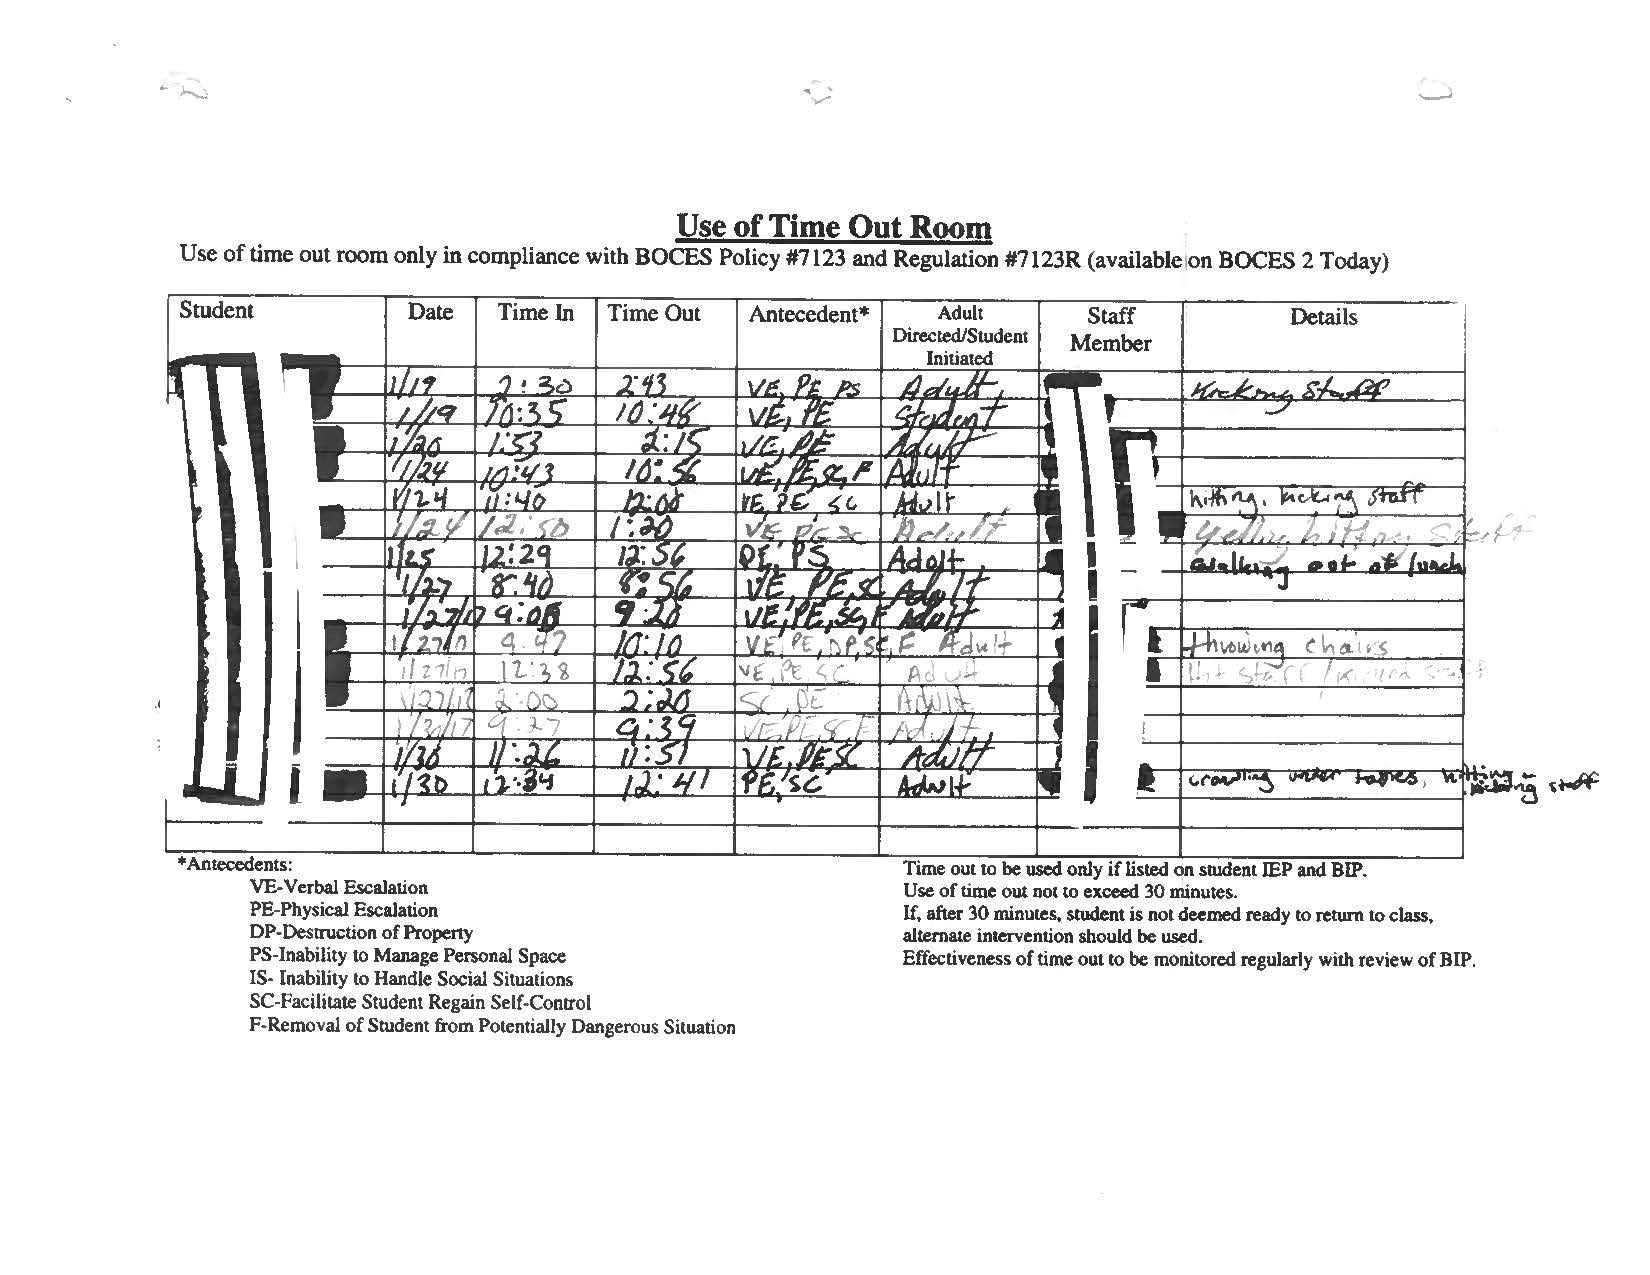 Use of Time Out Room
Use of time out room only in compliance with BOCES Policy #7123 and Regulation #7123R (available on BOCES 2 Today)
Student Date Time In Time Out Antecedent* Adult Directed/Student Initiated Staff Member Details
1/19 2:30 2:43 VE, PE PS Adult Kicking Staff
1/19 10:35 10:48 VE, PE Student
1/20 1:53 2:15 VE, PE Adult
1/24 10:43 10:56 VE, PE, SC, F Adult
1/24 11:40 12:00 VE, PE, SC Adult hitting, kicking staff
1/24 12:50 1:20 VE, PE SC Adult yelling hitting Staff
1/25 12:29 12:56 PE, PS Adult walking out at lunch
1/27 8:40 8:56 VE, PE, SC Adult
1/27/17 9:08 9:20 VE, PE, SC, F Adult
1/27/17 9:47 10:10 VE, PE, DP, SC, F Adult throwing chairs
1/27/17 12:38 12:56 VE, PE, SC Adult Hit staff / kicked staff
1/27/17 2:00 2:20 SC, PE Adult
1/30/17 9:27 9:39 VE, PE, SC, F Adult
1/30 11:26 11:51 VE, PE, SC Adult
1/30 12:34 12:41 PE, SC Adult crawling under tables, hitting - kicking staff
*Antecedents:
VE-Verbal Escalation
PE-Physical Escalation
DP-Destruction of Property
PS-Inability to Manage Personal Space
IS- Inability to Handle Social Situations
SC-Facilitate Student Regain Self-Control
F-Removal of Student from Potentially Dangerous Situation
Time out to be used only if listed on student IEP and BIP.
Use of time out not to exceed 30 minutes.
If, after 30 minutes, student is not deemed ready to return to class,
alternate intervention should be used.
Effectiveness of time out to be monitored regularly with review of BIP.